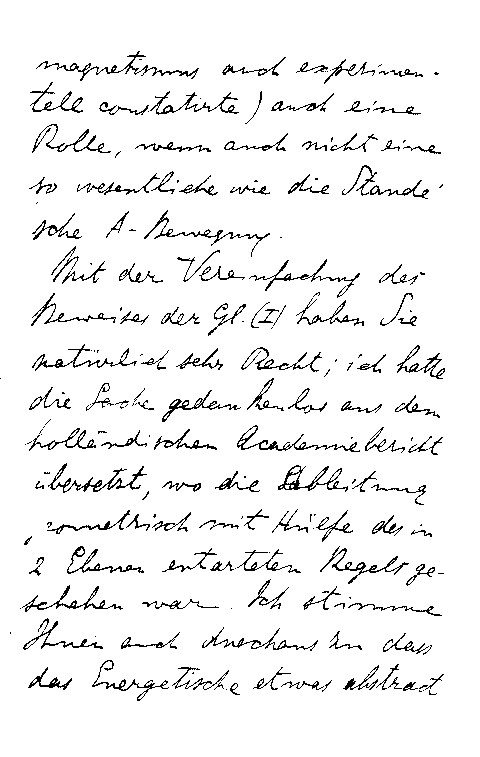 magnetismus auch experimen-
tell constatirte) auch eine
Rolle, wenn auch nicht eine
so wesentliche wie die Stande'
sche A-Bewegung.
Mit der Vereinfachung des
Beweises der Gl. (I) haben Sie
natürlich sehr Recht; ich hatte
die Sache gedankenlos aus dem
holländischen Academiebericht
übersetzt, wo die Ableitung
geometrisch mit Hülfe des in
2 Ebenen entarteten Kegels ge-
schehen war. Ich stimme
Ihnen auch durchaus zu dass
das Energetische etwas abstract